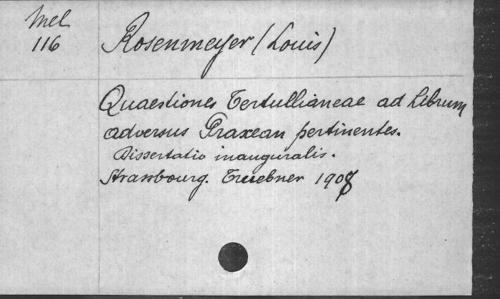 Mel
116
Rosenmeyer (Louis)
Quaestiones Tertullianeae ad Librum
adversus Praxean pertinentes.
Dissertatio inauguralis.
Strassbourg. Truebner